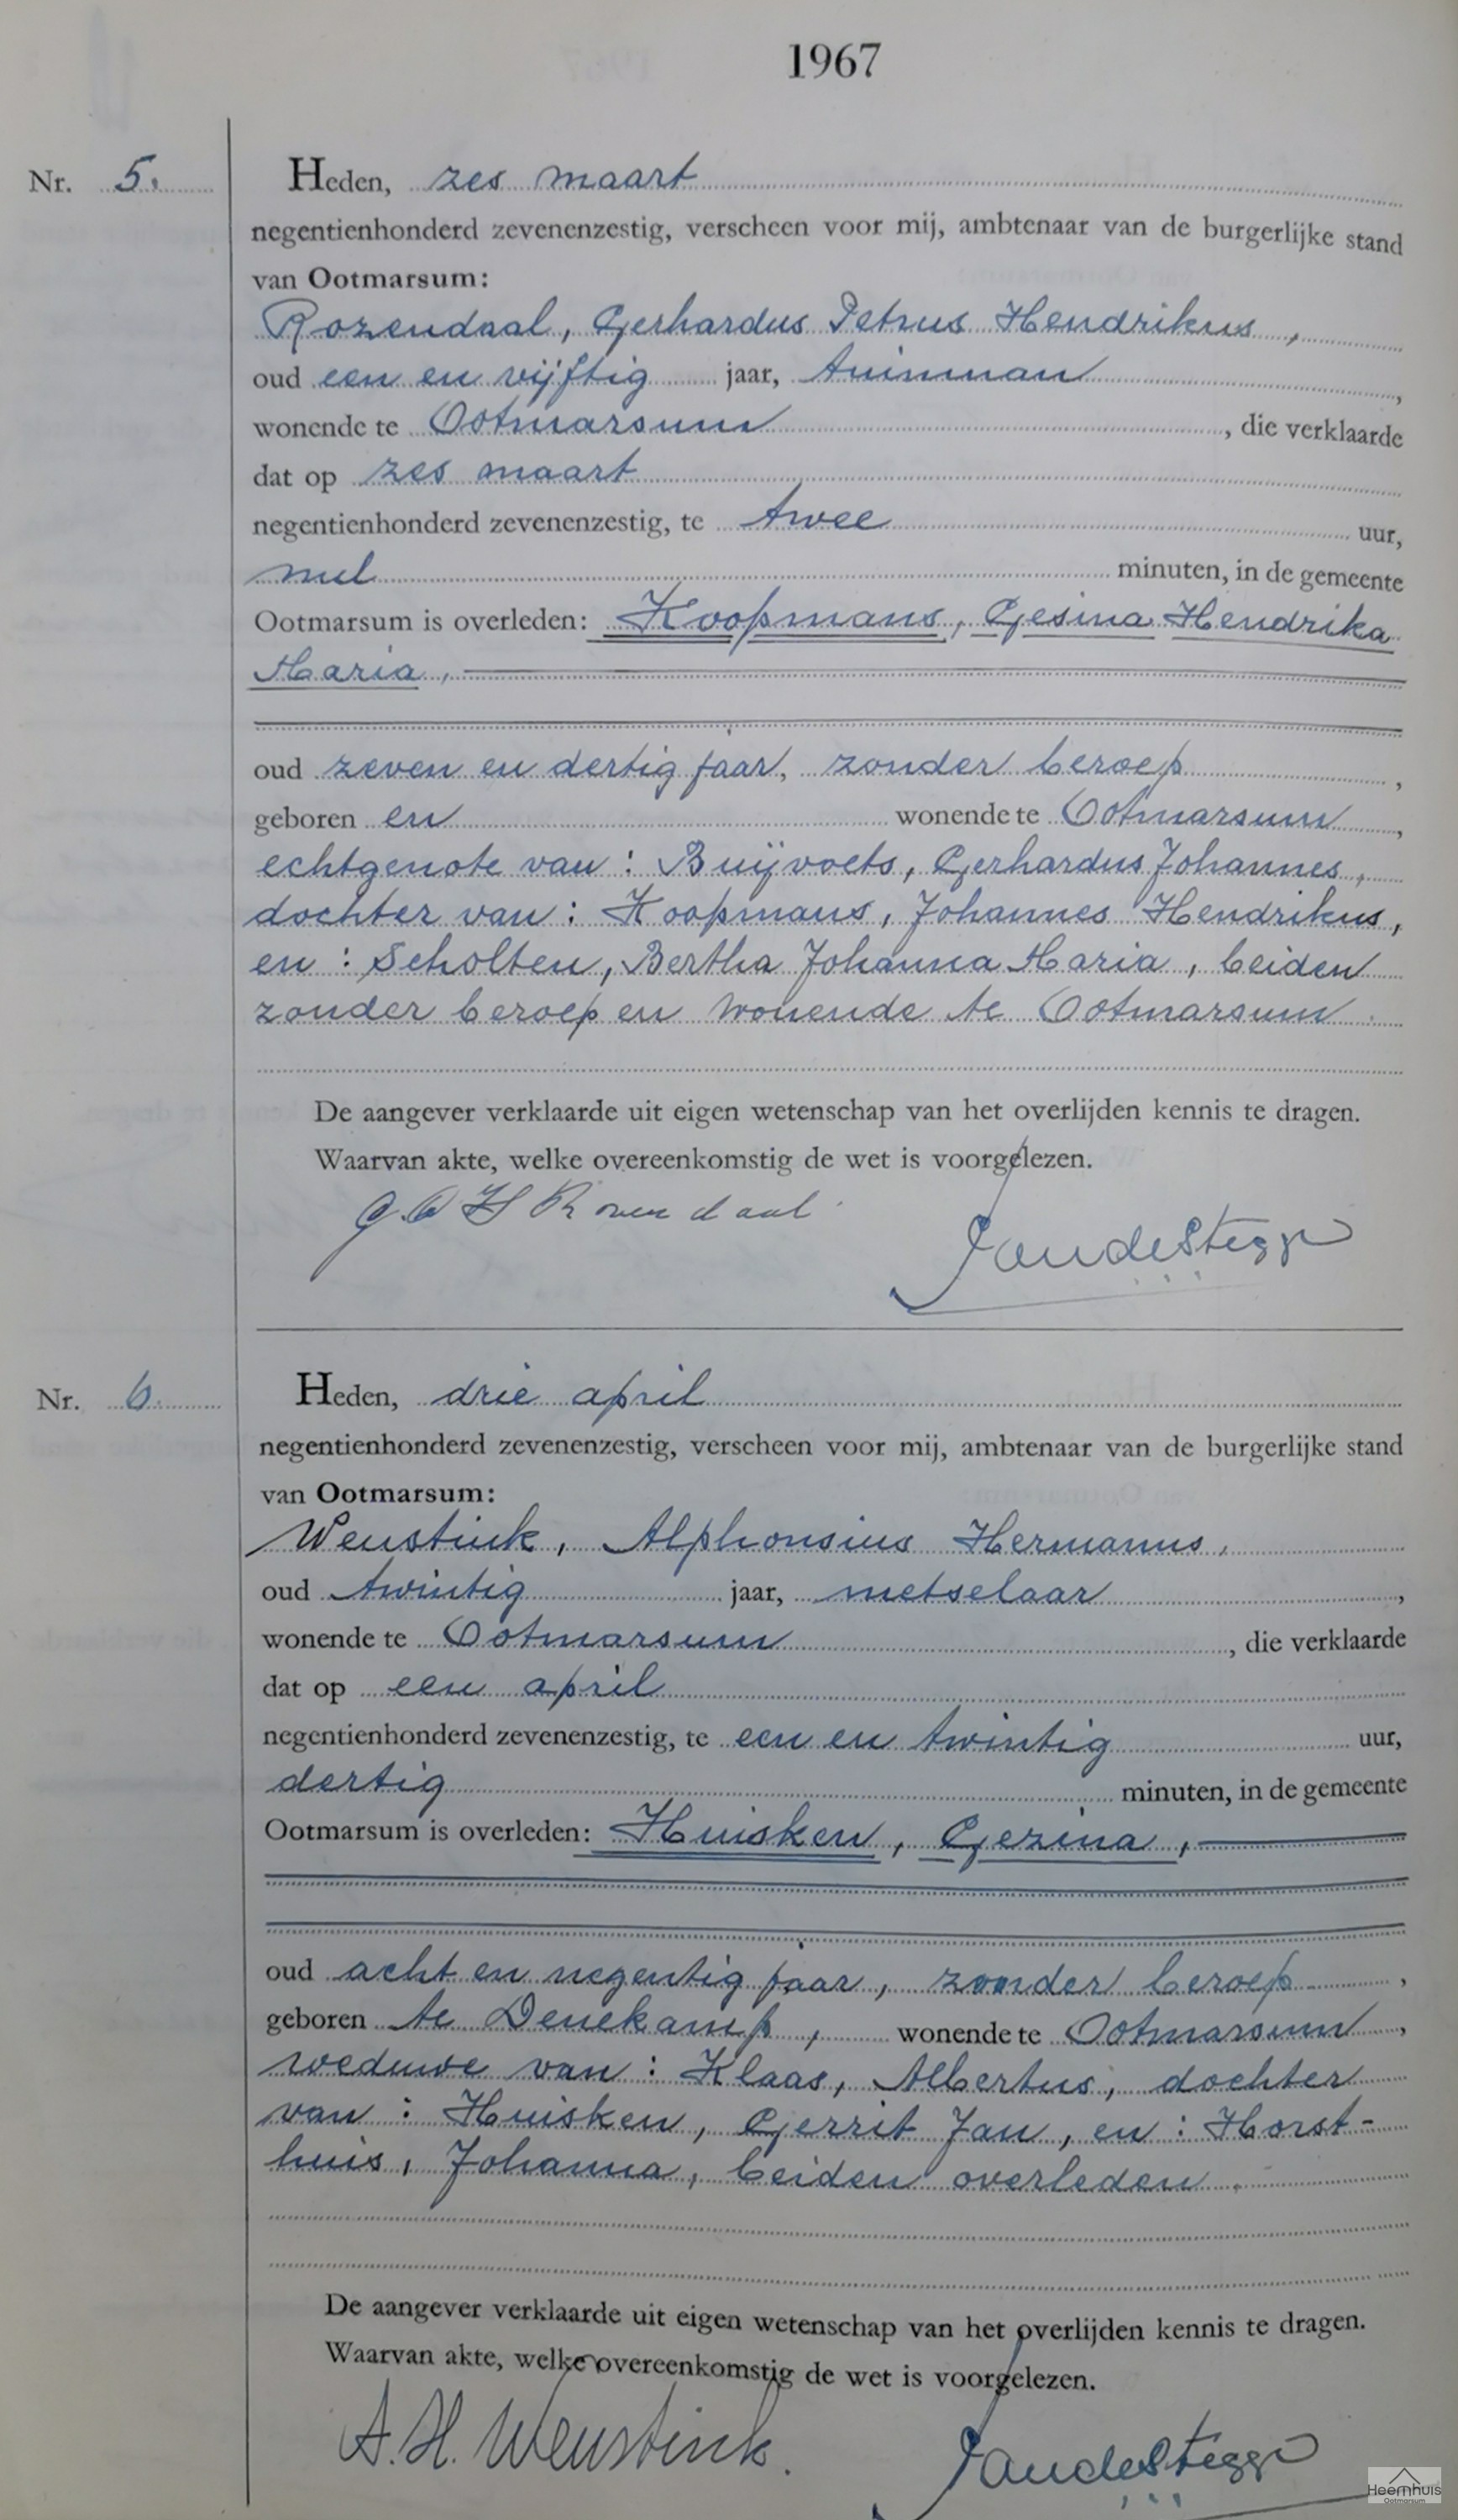 1967
Nr. 5.
Heden, zes maart
negentienhonderd zevenenzestig, verscheen voor mij, ambtenaar van de burgerlijke stand
van Ootmarsum:
Rozendaal, Gerhardus Petrus Hendrikus,
oud een en vijftig jaar, tuinman,
wonende te Ootmarsum, die verklaarde
dat op zes maart
negentienhonderd zevenenzestig, te twee uur,
nul minuten, in de gemeente
Ootmarsum is overleden: Koopmans, Gesina Hendrika
Maria,
oud zeven en dertig jaar, zonder beroep,
geboren en wonende te Ootmarsum,
echtgenote van: Buijvoets, Gerhardus Johannes,
dochter van: Koopmans, Johannes Hendrikus,
en: Scholten, Bertha Johanna Maria, beiden
zonder beroep en wonende te Ootmarsum.
De aangever verklaarde uit eigen wetenschap van het overlijden kennis te dragen.
Waarvan akte, welke overeenkomstig de wet is voorgelezen.
Nr. 6.
Heden, drie april
negentienhonderd zevenenzestig, verscheen voor mij, ambtenaar van de burgerlijke stand
van Ootmarsum:
Weustink, Alphonsius Hermanus,
oud twintig jaar, metselaar,
wonende te Ootmarsum, die verklaarde
dat op een april
negentienhonderd zevenenzestig, te een en twintig uur,
dertig minuten, in de gemeente
Ootmarsum is overleden: Huisken, Gezina,
oud acht en negentig jaar, zonder beroep,
geboren te Denekamp, wonende te Ootmarsum,
weduwe van: Klaas, Albertus, dochter
van: Huisken, Gerrit Jan, en: Horst-
huis, Johanna, beiden overleden.
De aangever verklaarde uit eigen wetenschap van het overlijden kennis te dragen.
Waarvan akte, welke overeenkomstig de wet is voorgelezen.
A. H. Weustink.
Heemhuis
Ootmarsum